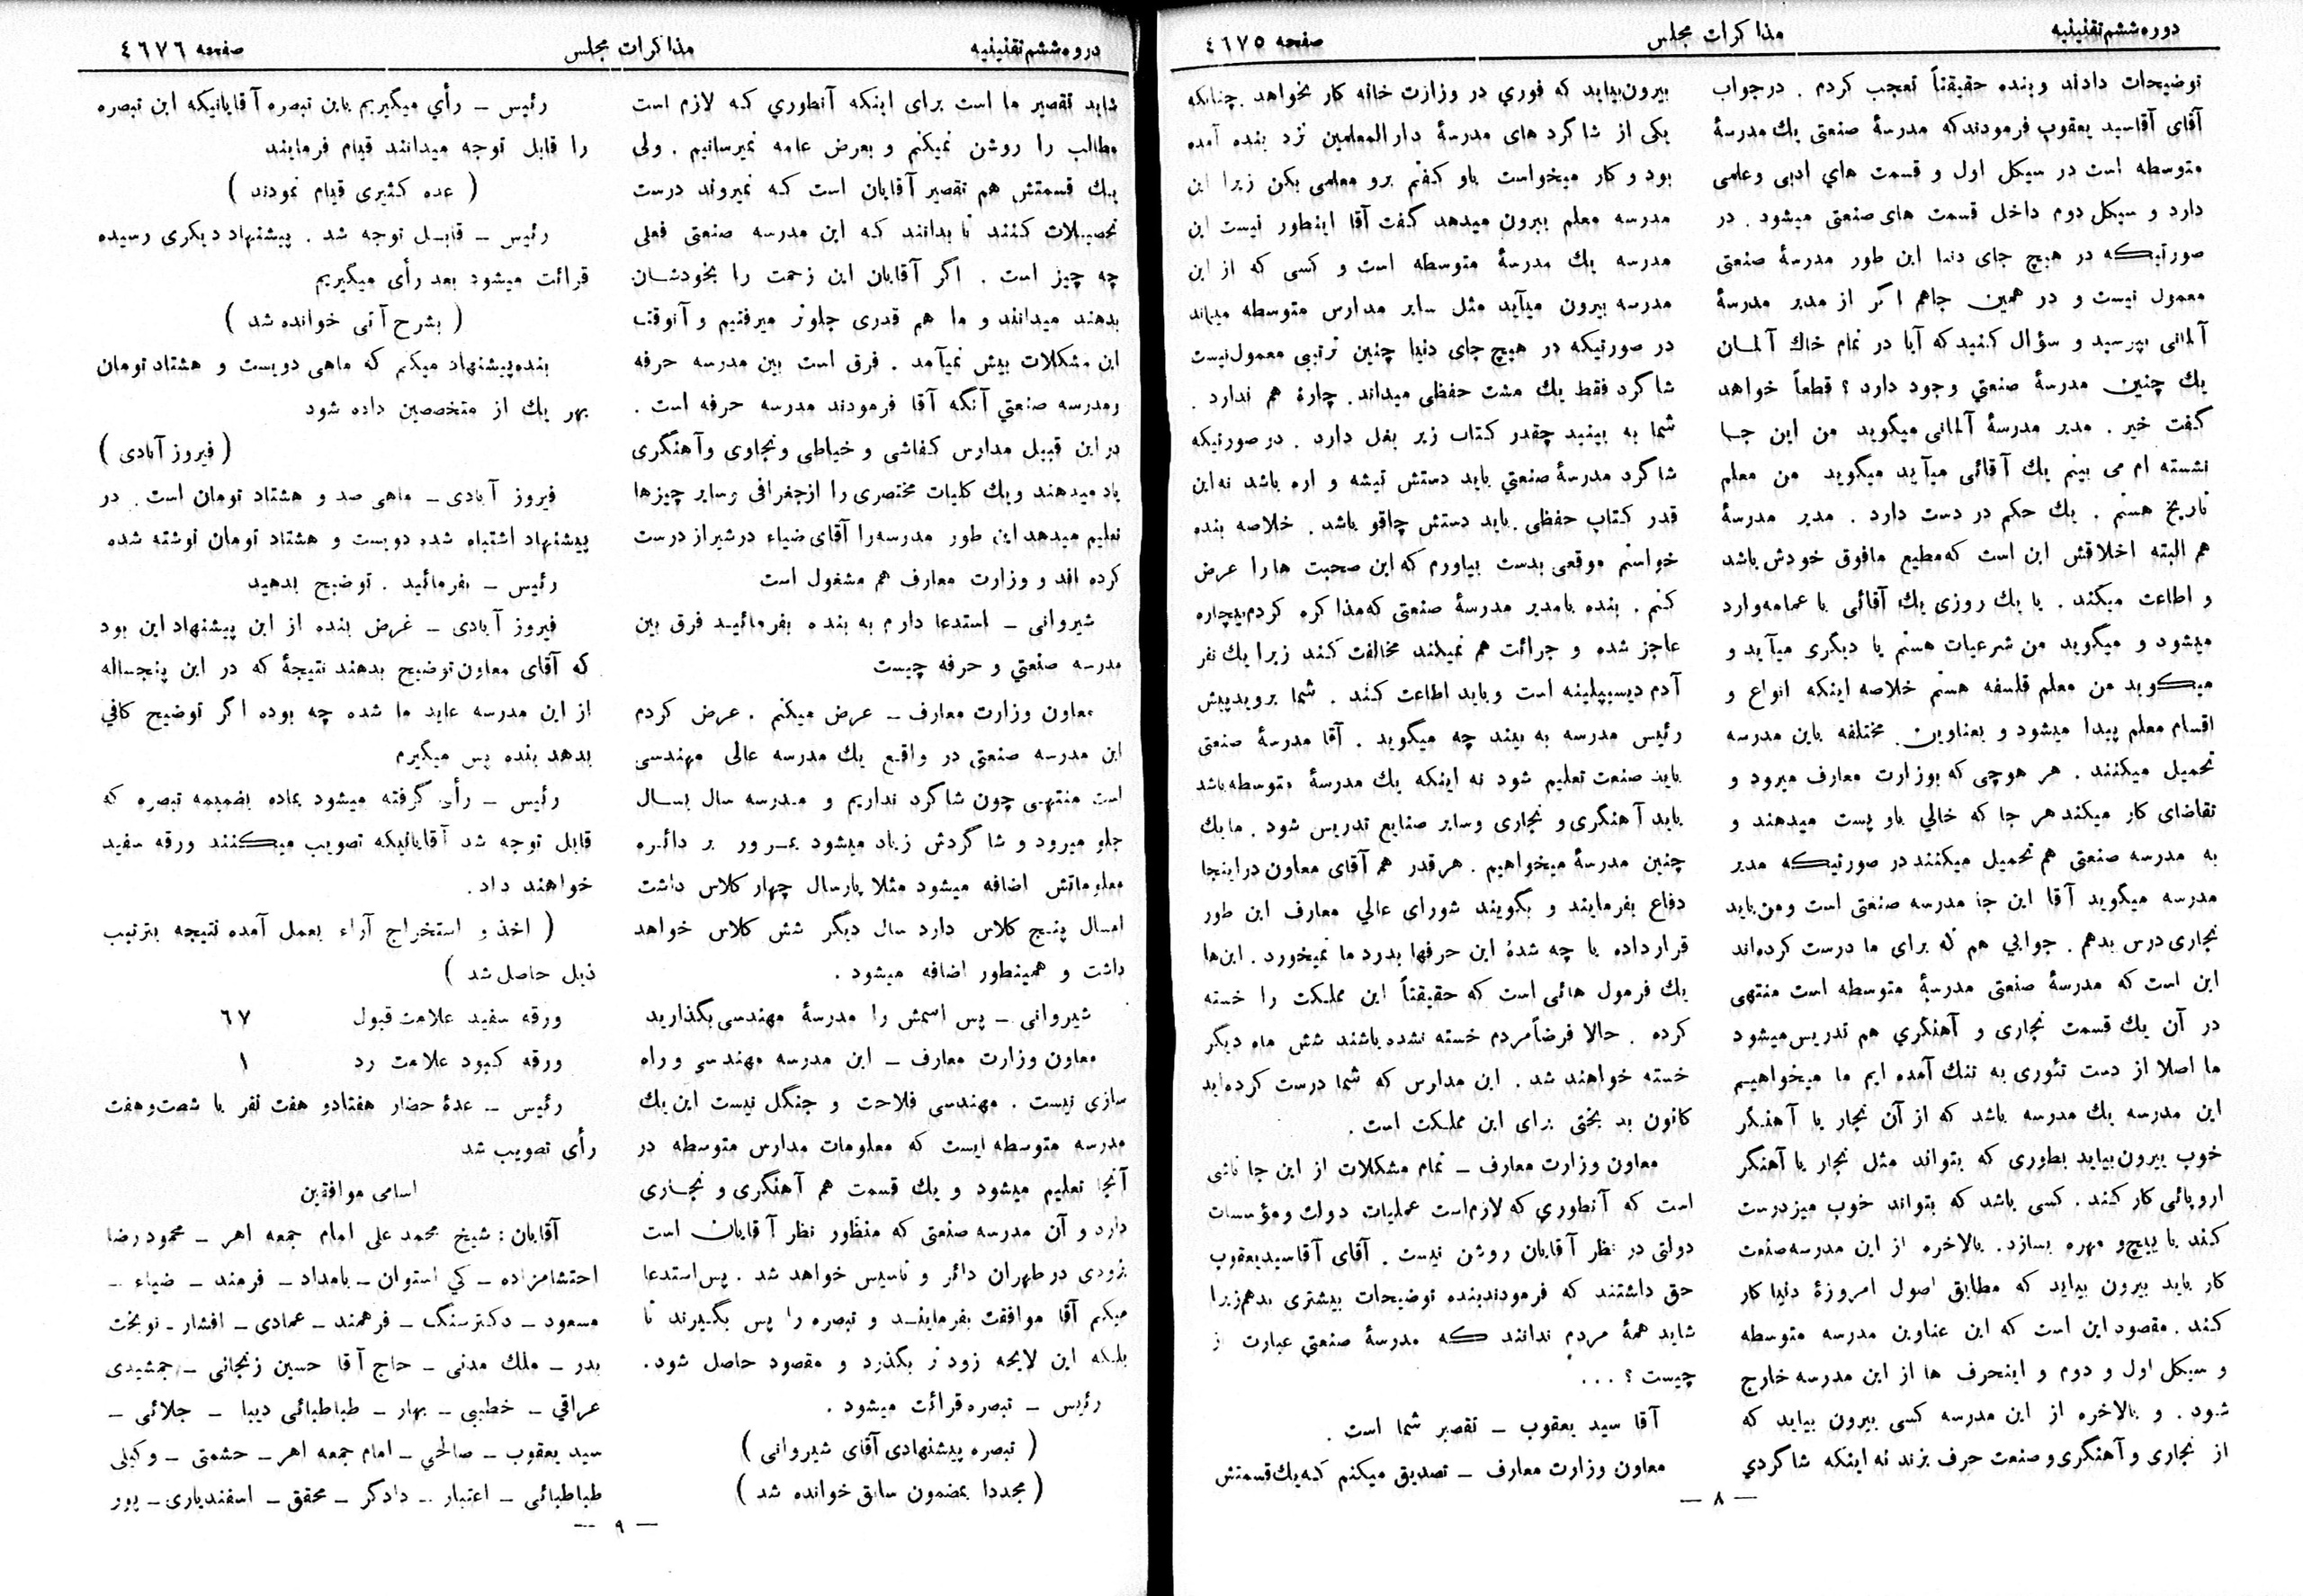 دوره ششم تقنینیه
مذاکرات مجلس
صفحه ٤٦٧٥
توضیحات دادند و بنده حقیقتاً تعجب کردم . در جواب
آقای آقاسید یعقوب فرمودند که مدرسۀ صنعتی یك مدرسۀ
متوسطه است در سیکل اول و قسمت های ادبی و علمی
دارد و سیکل دوم داخل قسمت های صنعتی میشود . در
صورتیکه در هیچ جای دنیا این طور مدرسۀ صنعتی
معمول نیست و در همین جاهم اگر از مدیر مدرسۀ
آلمانی بپرسید و سؤال کنید که آیا در تمام خاك آلمان
یك چنین مدرسۀ صنعتی وجود دارد ؟ قطعاً خواهد
گفت خیر . مدیر مدرسۀ آلمانی میگوید من این جا
نشسته ام می بینم یك آقائی میآید میگوید من معلم
تاریخ هستم . یك حکم در دست دارد . مدیر مدرسۀ
هم البته اخلاقش این است که مطیع مافوق خودش باشد
و اطاعت میکند . یا یك روزی یك آقائی با عمامه وارد
میشود و میگوید من شرعیات هستم یا دیگری میآید و
میگوید من معلم فلسفه هستم خلاصه اینکه انواع و
اقسام معلم پیدا میشود و بعناوین مختلفه باین مدرسه
تحمیل میکنند . هر هوچی که بوزارت معارف میرود و
تقاضای کار میکند هر جا که خالی باو پست میدهند و
به مدرسه صنعتی هم تحمیل میکنند در صورتیکه مدیر
مدرسه میگوید آقا این جا مدرسه صنعتی است و من باید
نجاری درس بدهم . جوابی هم که برای ما درست کرده‌اند
این است که مدرسۀ صنعتی مدرسۀ متوسطه است منتهی
در آن یك قسمت نجاری و آهنگری هم تدریس میشود
ما اصلا از دست تئوری به تنك آمده ایم ما میخواهیم
این مدرسه یك مدرسه باشد که از آن نجار یا آهنگر
خوب بیرون بیاید بطوری که بتواند مثل نجار یا آهنگر
اروپائی کار کند . کسی باشد که بتواند خوب میز درست
کند یا پیچ و مهره بسازد . بالاخره از این مدرسه صنعت
کار باید بیرون بیاید که مطابق اصول امروزۀ دنیا کار
کند . مقصود این است که این عناوین مدرسه متوسطه
و سیکل اول و دوم و اینحرف ها از این مدرسه خارج
شود . و بالاخره از این مدرسه کسی بیرون بیاید که
از نجاری و آهنگری و صنعت حرف بزند نه اینکه شاگردی
بیرون بیاید که فوری در وزارت خانه کار بخواهد . چنانکه
یکی از شاگرد های مدرسۀ دارالمعلمین نزد بنده آمده
بود و کار میخواست باو گفتم برو معلمی بکن زیرا این
مدرسه معلم بیرون میدهد گفت آقا اینطور نیست این
مدرسه یك مدرسۀ متوسطه است و کسی که از این
مدرسه بیرون میآید مثل سایر مدارس متوسطه میماند
در صورتیکه در هیچ جای دنیا چنین ترتیبی معمول نیست
شاگرد فقط یك مشت حفظی میداند . چارۀ هم ندارد .
شما به بینید چقدر کتاب زیر بغل دارد . در صورتیکه
شاگرد مدرسۀ صنعتی باید دستش تیشه و اره باشد نه این
قدر کتاب حفظی . باید دستش چاقو باشد . خلاصه بنده
خواستم موقعی بدست بیاورم که این صحبت ها را عرض
کنم . بنده با مدیر مدرسۀ صنعتی که مذاکره کردم بیچاره
عاجز شده و جرائت هم نمیکند مخالفت کند زیرا یك نفر
آدم دیسیپلینه است و باید اطاعت کند . شما بروید پیش
رئیس مدرسه به بینید چه میگوید . آقا مدرسۀ صنعتی
باید صنعت تعلیم شود نه اینکه یك مدرسۀ متوسطه باشد
باید آهنگری و نجاری و سایر صنایع تدریس شود . ما یك
چنین مدرسۀ میخواهیم . هر قدر هم آقای معاون در اینجا
دفاع بفرمایند و بگویند شورای عالی معارف این طور
قرار داده یا چه شدۀ این حرفها بدرد ما نمیخورد . این‌ها
یك فرمول هائی است که حقیقتاً این مملکت را خسته
کرده . حالا فرضاً مردم خسته نشده باشند شش ماه دیگر
خسته خواهند شد . این مدارس که شما درست کرده‌اید
کانون بد بختی برای این مملکت است .
معاون وزارت معارف ــ تمام مشکلات از این جا ناشی
است که آنطوری که لازم است عملیات دولت و مؤسسات
دولتی در نظر آقایان روشن نیست . آقای آقاسید یعقوب
حق داشتند که فرمودند بنده توضیحات بیشتری بدهم زیرا
شاید همۀ مردم ندانند که مدرسۀ صنعتی عبارت از
چیست ؟ ...
آقا سید یعقوب ــ تقصیر شما است .
معاون وزارت معارف ــ تصدیق میکنم که یك قسمتش
— ٨ —
دروه ششم تقنینیه
مذاکرات مجلس
صفحه ٤٦٧٦
شاید تقصیر ما است برای اینکه آنطوری که لازم است
مطالب را روشن نمیکنم و بعرض عامه نمیرسانیم . ولی
یك قسمتش هم تقصیر آقایان است که نمیروند درست
تحصیلات کنند تا بدانند که این مدرسه صنعتی فعلی
چه چیز است . اگر آقایان این زحمت را بخودشان
بدهند میدانند و ما هم قدری جلوتر میرفتیم و آنوقت
این مشکلات پیش نمیآمد . فرق است بین مدرسه حرفه
و مدرسه صنعتی آنگه آقا فرمودند مدرسه حرفه است .
در این قبیل مدارس کفاشی و خیاطی و نجاری و آهنگری
یاد میدهند و یك کلیات مختصری را از جغرافی و سایر چیزها
تعلیم میدهد این طور مدرسه را آقای ضیاء در شیراز درست
کرده اند و وزارت معارف هم مشغول است
شیروانی ــ استدعا دارم به بنده بفرمائید فرق بین
مدرسه صنعتی و حرفه چیست
معاون وزارت معارف ــ عرض میکنم . عرض کردم
این مدرسه صنعتی در واقع یك مدرسه عالی مهندسی
است منتهی چون شاگرد نداریم و مدرسه سال بسال
جلو میرود و شاگردش زیاد میشود بمرور بر دائره
معلوماتش اضافه میشود مثلا پارسال چهار کلاس داشت
امسال پنج کلاس دارد سال دیگر شش کلاس خواهد
داشت و همینطور اضافه میشود .
شیروانی ــ پس اسمش را مدرسۀ مهندسی بگذارید
معاون وزارت معارف ــ این مدرسه مهندسی و راه
سازی نیست . مهندسی فلاحت و جنگل نیست این یك
مدرسه متوسطه ایست که معلومات مدارس متوسطه در
آنجا تعلیم میشود و یك قسمت هم آهنگری و نجاری
دارد و آن مدرسه صنعتی که منظور نظر آقایان است
بزودی در طهران دائر و تاسیس خواهد شد . پس استدعا
میکنم آقا موافقت بفرمایند و تبصره را پس بگیرند تا
بلکه این لایحه زودتر بگذرد و مقصود حاصل شود .
رئیس ــ تبصره قرائت میشود .
( تبصره پیشنهادی آقای شیروانی )
( مجددا بمضمون سابق خوانده شد )
رئیس ــ رأی میگیریم باین تبصره آقایانیکه این تبصره
را قابل توجه میدانند قیام فرمایند
( عده کثیری قیام نمودند )
رئیس ــ قابل توجه شد . پیشنهاد دیگری رسیده
قرائت میشود بعد رأی میگیریم
( بشرح آتی خوانده شد )
بنده پیشنهاد میکنم که ماهی دویست و هشتاد تومان
بهر یك از متخصصین داده شود
( فیروز آبادی )
فیروز آبادی ــ ماهی صد و هشتاد تومان است . در
پیشنهاد اشتباه شده دویست و هشتاد تومان نوشته شده
رئیس ــ بفرمائید . توضیح بدهید
فیروز آبادی ــ غرض بنده از این پیشنهاد این بود
که آقای معاون توضیح بدهند نتیجۀ که در این پنجساله
از این مدرسه عاید ما شده چه بوده اگر توضیح کافی
بدهد بنده پس میگیرم
رئیس ــ رأی گرفته میشود بماده بضمیمه تبصره که
قابل توجه شد آقایانیکه تصویب میکنند ورقه سفید
خواهند داد .
( اخذ و استخراج آراء بعمل آمده نتیجه بترتیب
ذیل حاصل شد )
ورقه سفید علامت قبول ٦٧
ورقه کبود علامت رد ١
رئیس ــ عدۀ حضار هفتادو هفت نفر با شصت و هفت
رأی تصویب شد
اسامی موافقین
آقایان : شیخ محمد علی امام جمعه اهر ــ محمود رضا
احتشامزاده ــ کی استوان ــ بامداد ــ فرمند ــ ضیاء ــ
مسعود ــ دکتر سنگ ــ فرهمند ــ عمادی ــ افشار ــ نوبخت
بدر ــ ملك مدنی ــ حاج آقا حسین زنجانی ــ جمشیدی
عراقی ــ خطیبی ــ بهار ــ طباطبائی دیبا ــ جلائی ــ
سید یعقوب ــ صالحی ــ امام جمعه اهر ــ حشمتی ــ وکیلی
طباطبائی ــ اعتبار ــ دادگر ــ محقق ــ اسفندیاری ــ پور
— ٩ —